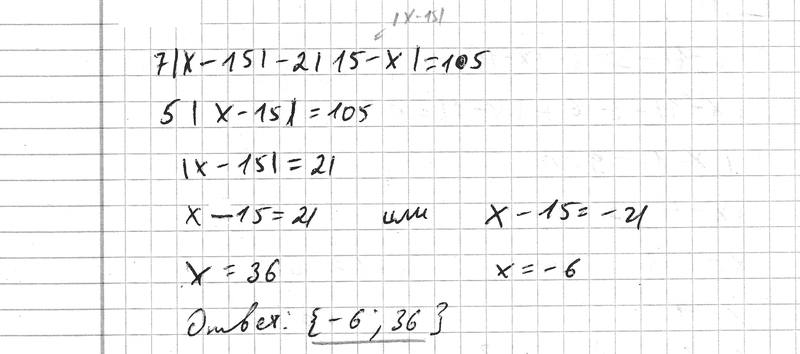 |x-15|
7|x-15|-2|15-x|=105
5|x-15|=105
|x-15|=21
x-15=21 или x-15=-21
x=36 x=-6
Ответ: {-6; 36}